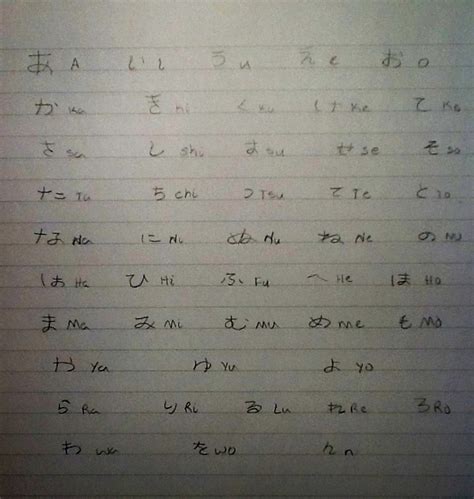 あ A い i う u え e お o
か Ka き Ki く Ku け Ke て Ke
さ Sa し Shi す Su せ Se そ So
た Ta ち Chi つ Tsu て Te と To
な Na に Ni ぬ Nu ね Ne の No
は Ha ひ Hi ふ Fu へ He ほ Ho
ま Ma み Mi む Mu め Me も Mo
や Ya ゆ Yu よ Yo
ら Ra り Ri る Lu れ Re ろ Ro
わ wa を wo ん n